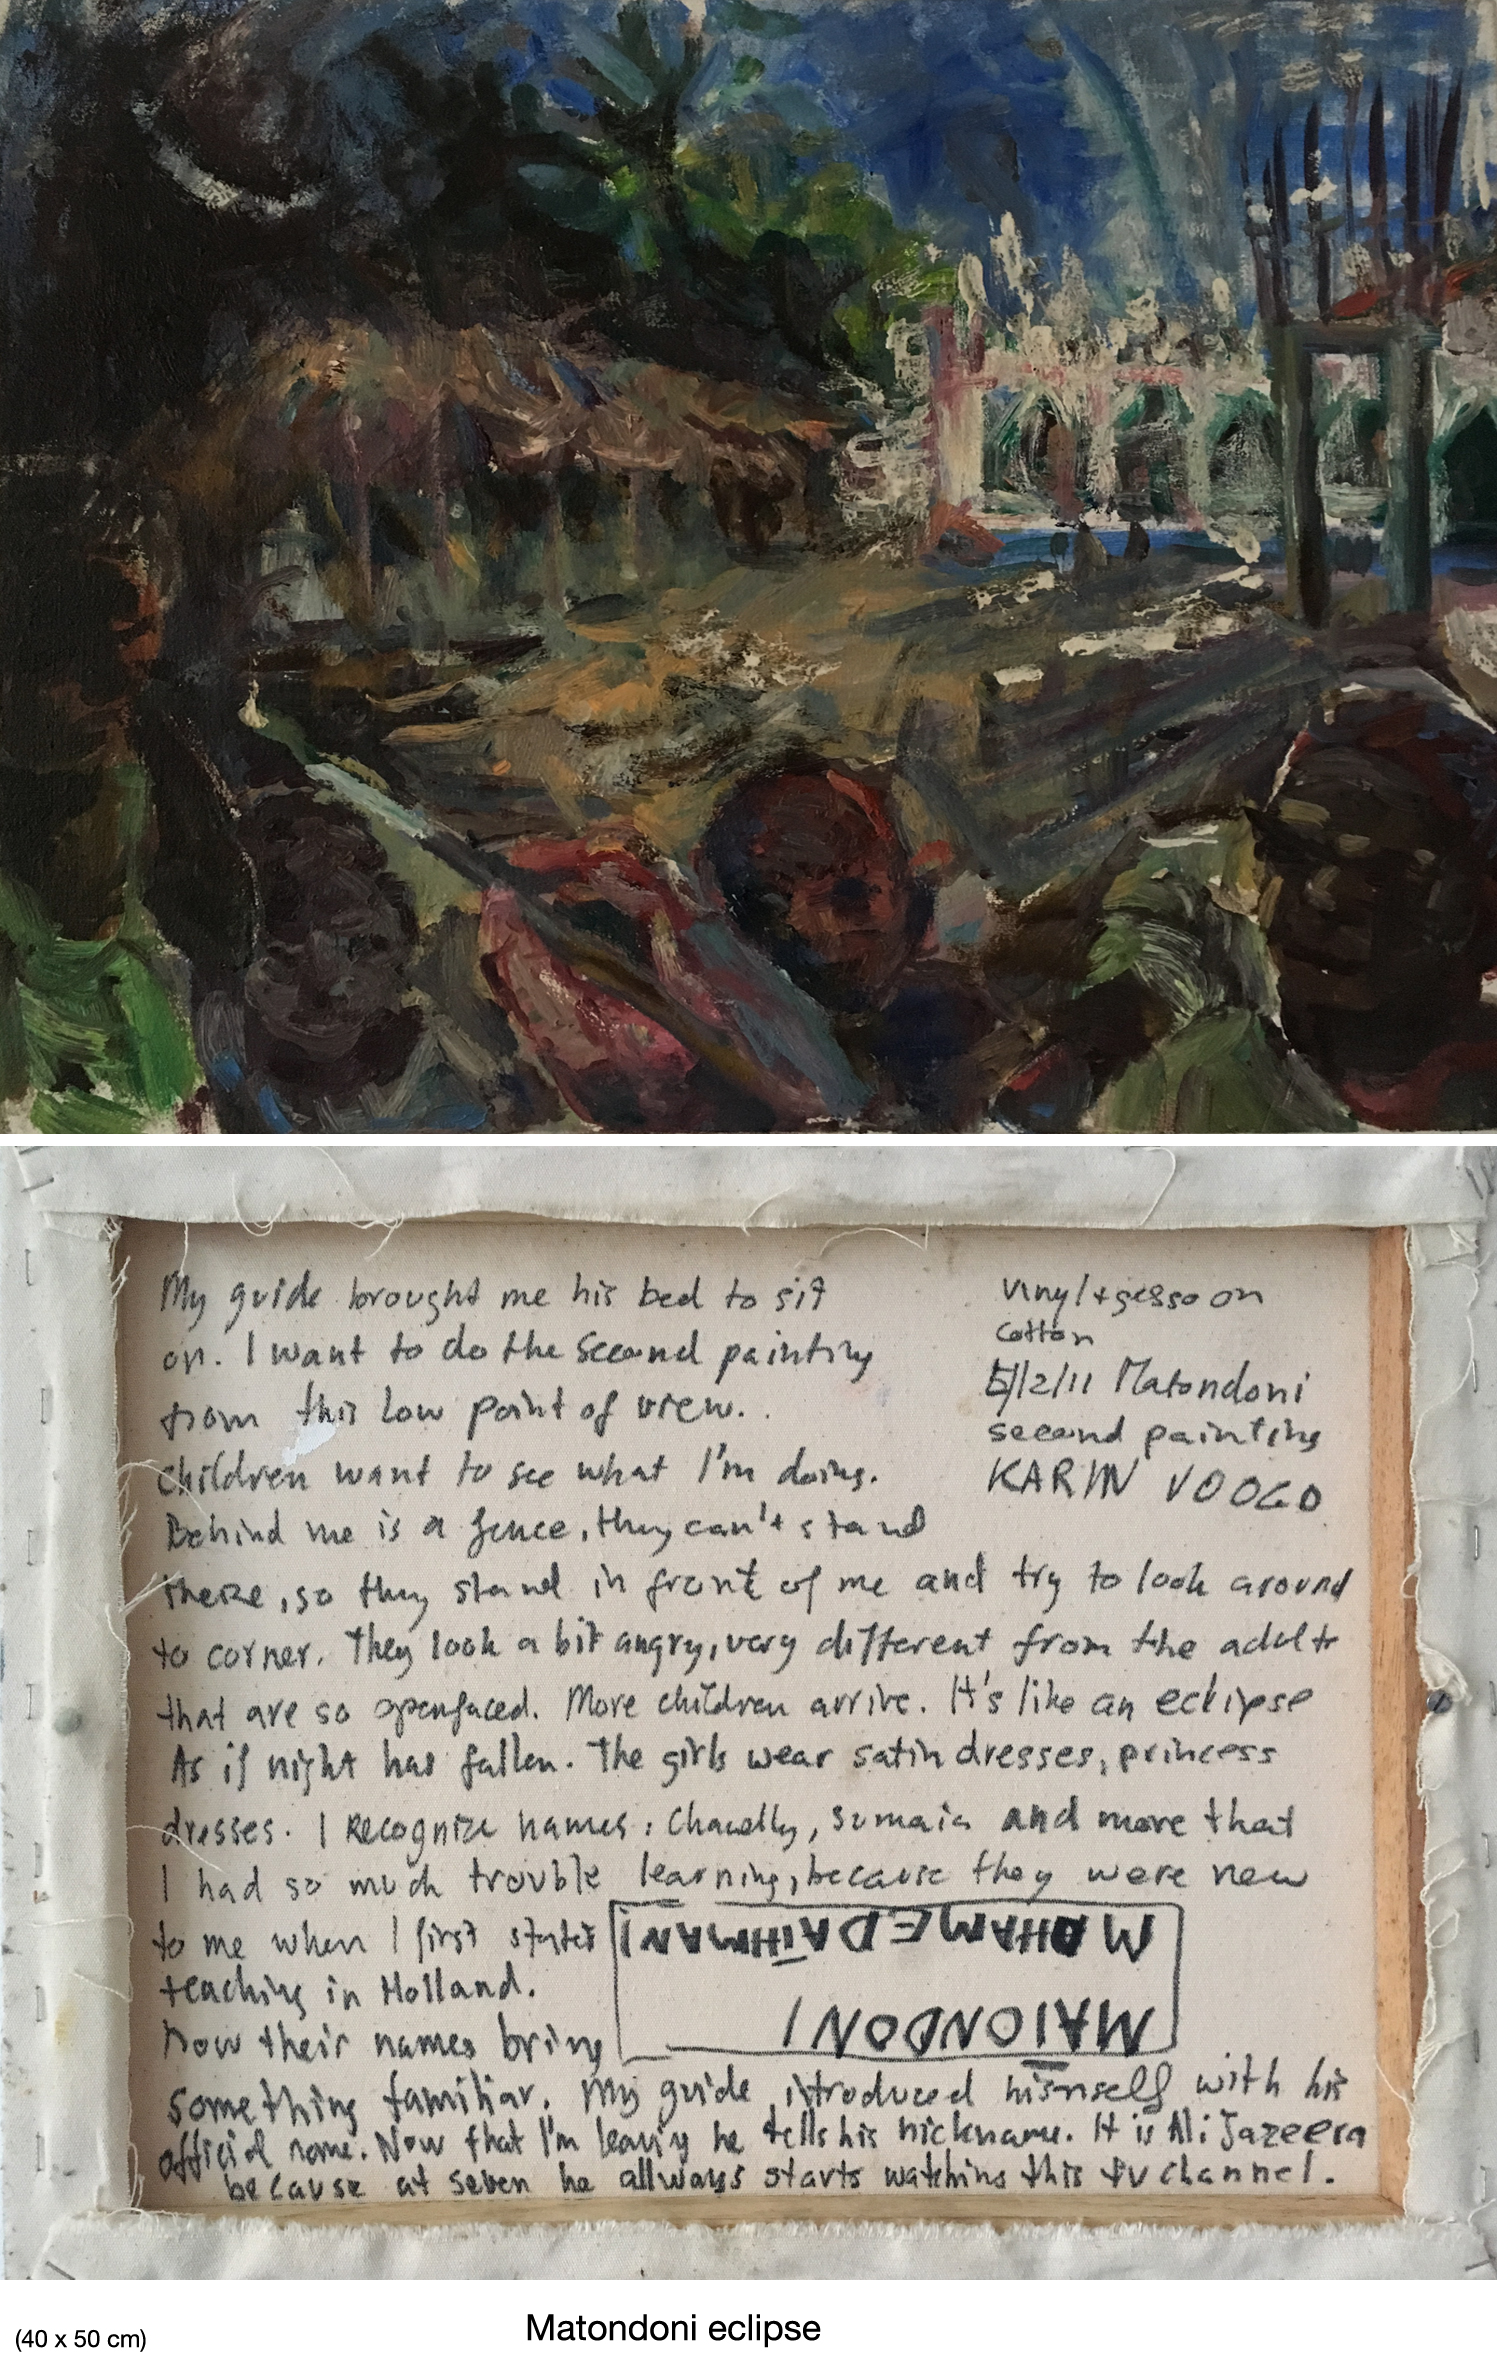 My guide brought me his bed to sit
on. I want to do the second painting
from this low point of view.
children want to see what I'm doing.
Behind me is a fence, they can't stand
there, so they stand in front of me and try to look around
to corner. They look a bit angry, very different from the adults
that are so openfaced. More children arrive. It's like an eclipse
As if night has fallen. The girls wear satin dresses, princess
dresses. I recognize names: Sumaia and more that
I had so much trouble learning, because they were new
to me when I first started
teaching in Holland.
Now their names bring
something familiar. My guide introduced himself with his
official name. Now that I'm leaving he tells his nickname. It is Ali Jazeera
because at seven he allways starts watching this tv channel.
vinyl + gesso on
cotton
5/2/11 Matondoni
second painting
KARIN VOOGD
MATONDONI
MOHAMED
Matondoni eclipse
(40 x 50 cm)